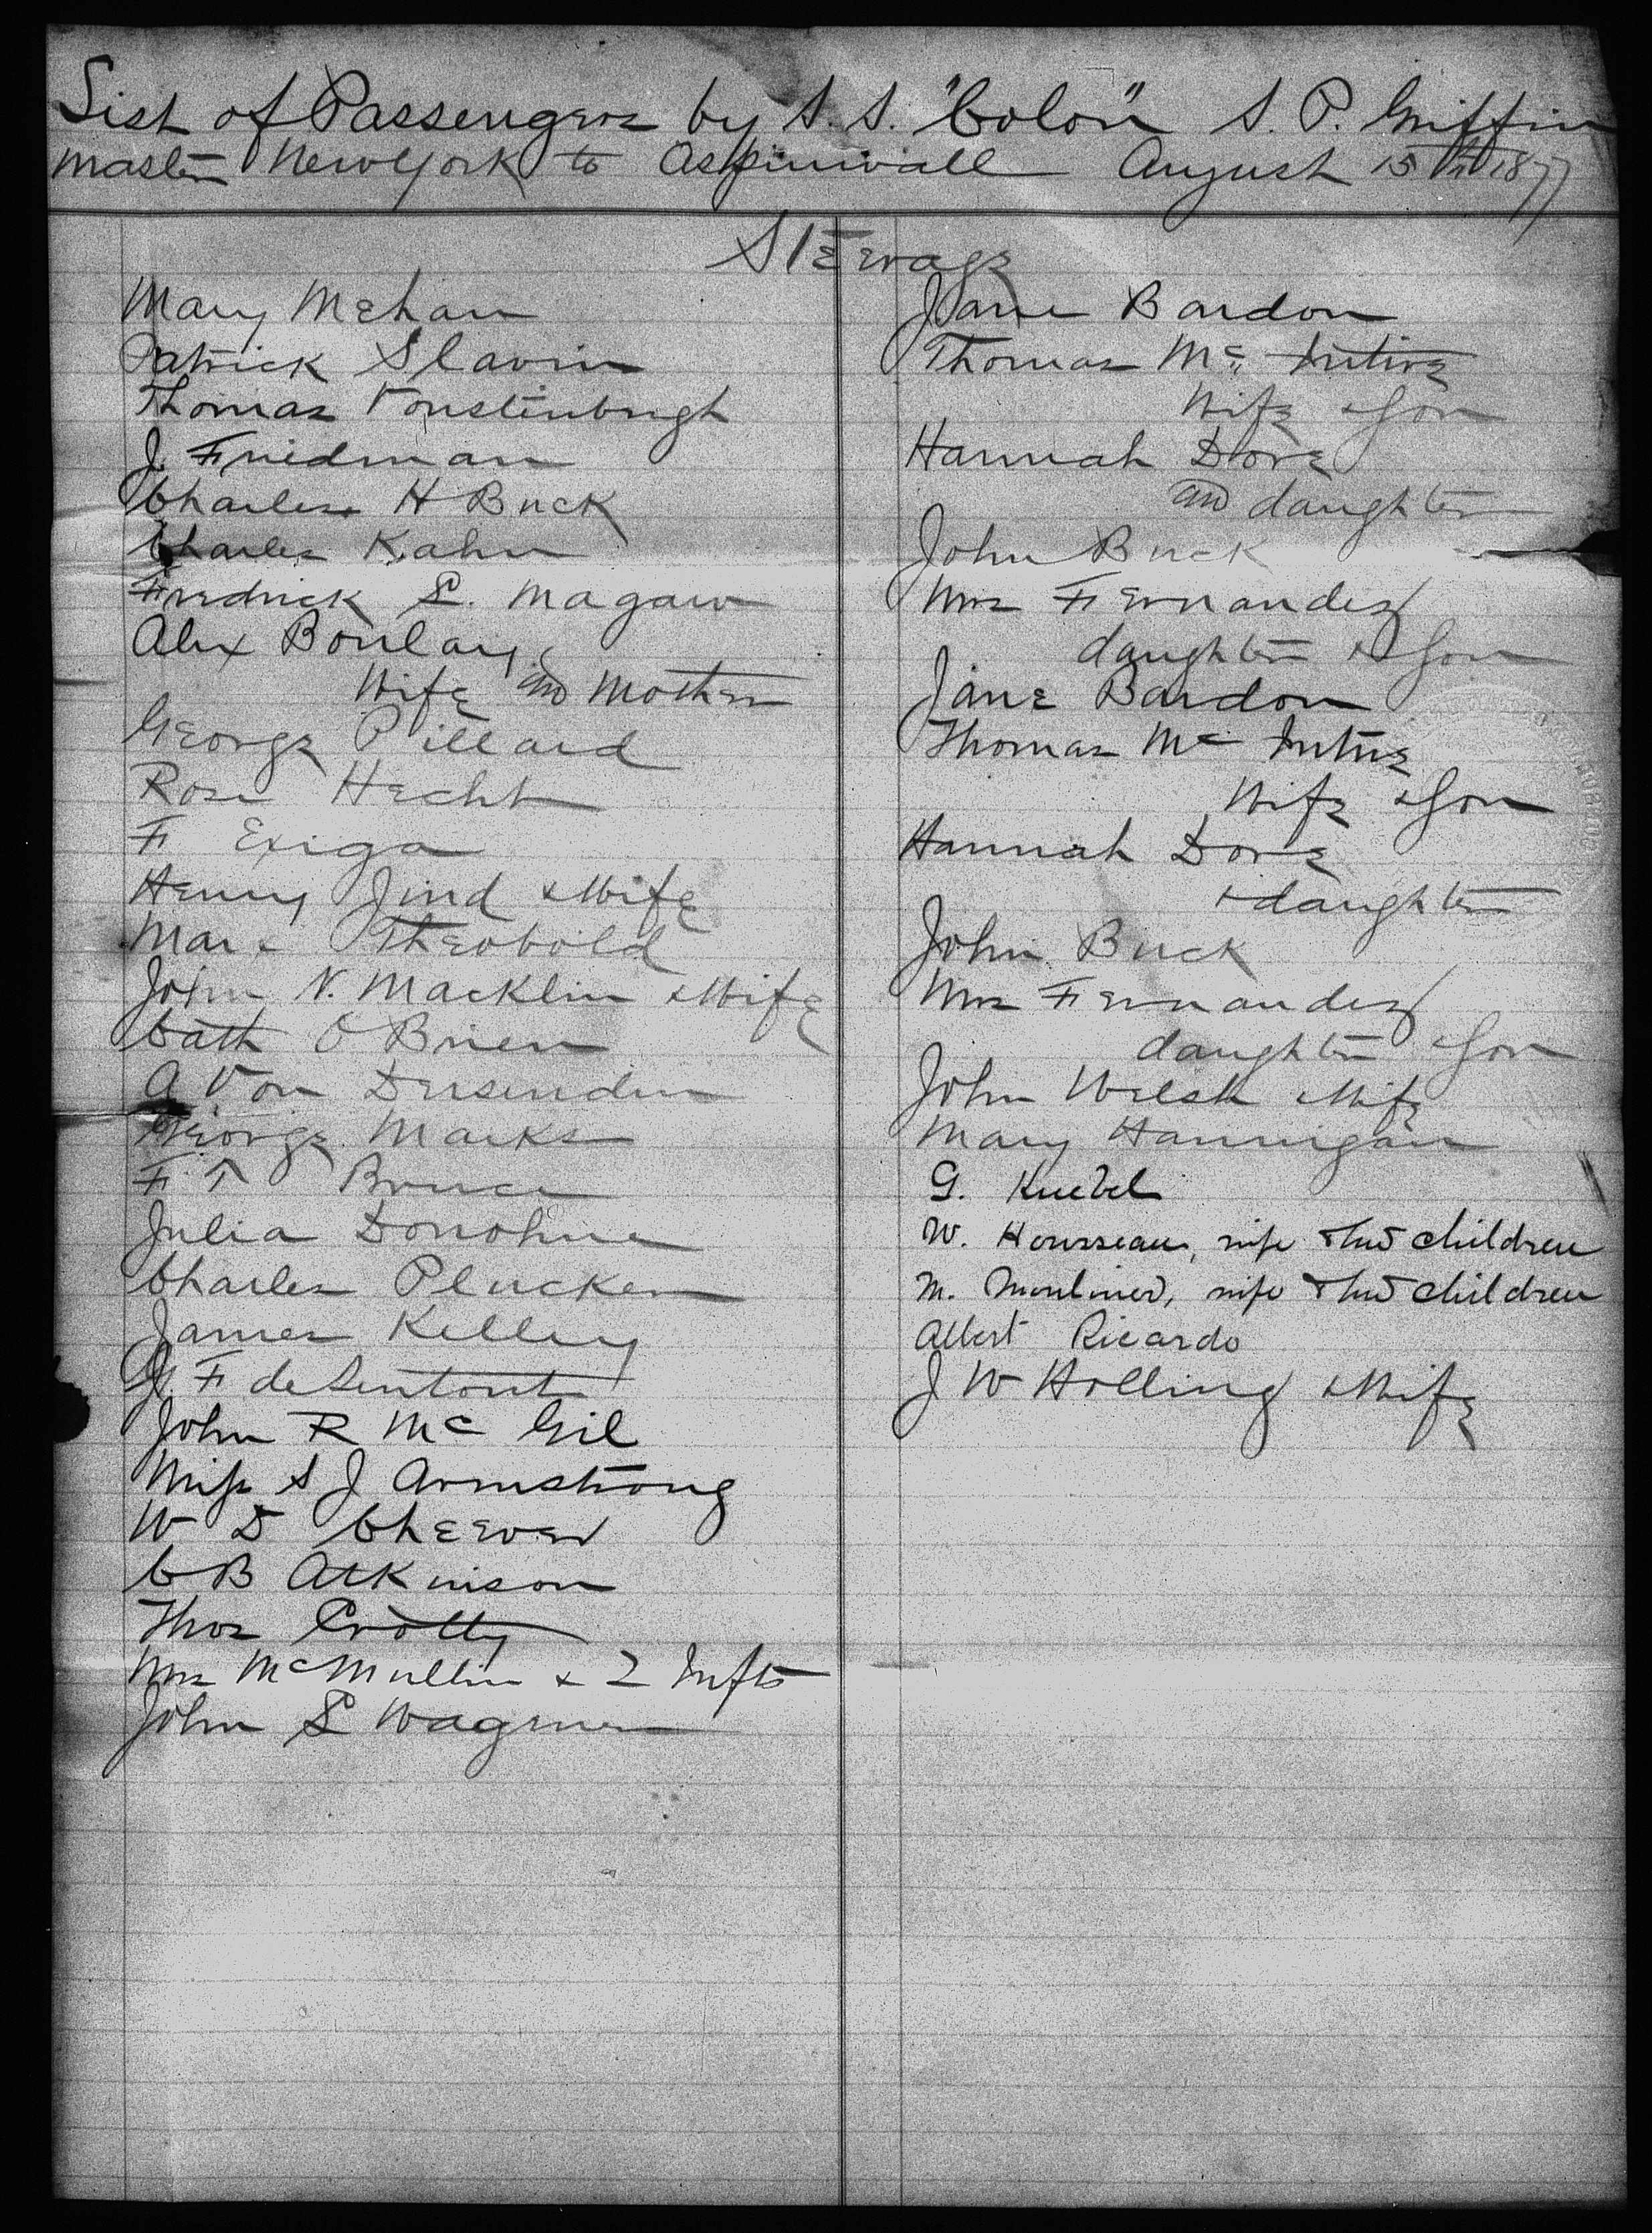 List of Passengers by S. S. "Colon" S. P. Griffin
master New York to Aspinwall August 15th 1877
Steerage
Mary Mehan
Patrick Slavin
Thomas Vonstenburgh
J. Friedman
Charles H Buck
Charles Kahn
Fredrick L. Magaw
Alex Boulay,
Wife and Mother
George Pillard
Rose Hecht
F Exiga
Henry Jind & Wife
Mar Theobold
John N. Macklin & Wife
Cath O Brien
A Von
George Marks
F T Bruce
Julia Donohue
Charles Plucker
James Kelley
F
John R Mc Gil
Miss S J Armstrong
W D Cheever
C B Atkinson
Thos Pratty
Mrs McMullin & 2 Infts
John L Wagener
Jane Bardon
Thomas Mc Intire
Wife & Son
Hannah Dore
and daughter
John Buck
Mrs Fernandez
daughter & Son
Jane Bardon
Thomas Mc Intire
Wife & Son
Hannah Dore
& daughter
John Buck
Mrs Fernandez
daughter & Son
John Welsh & Wife
Mary Hannigan
G. Kuebel
W. Housseau, wife & two children
M. Moulined, wife & two children
Albert Ricardo
J W Holling & Wife